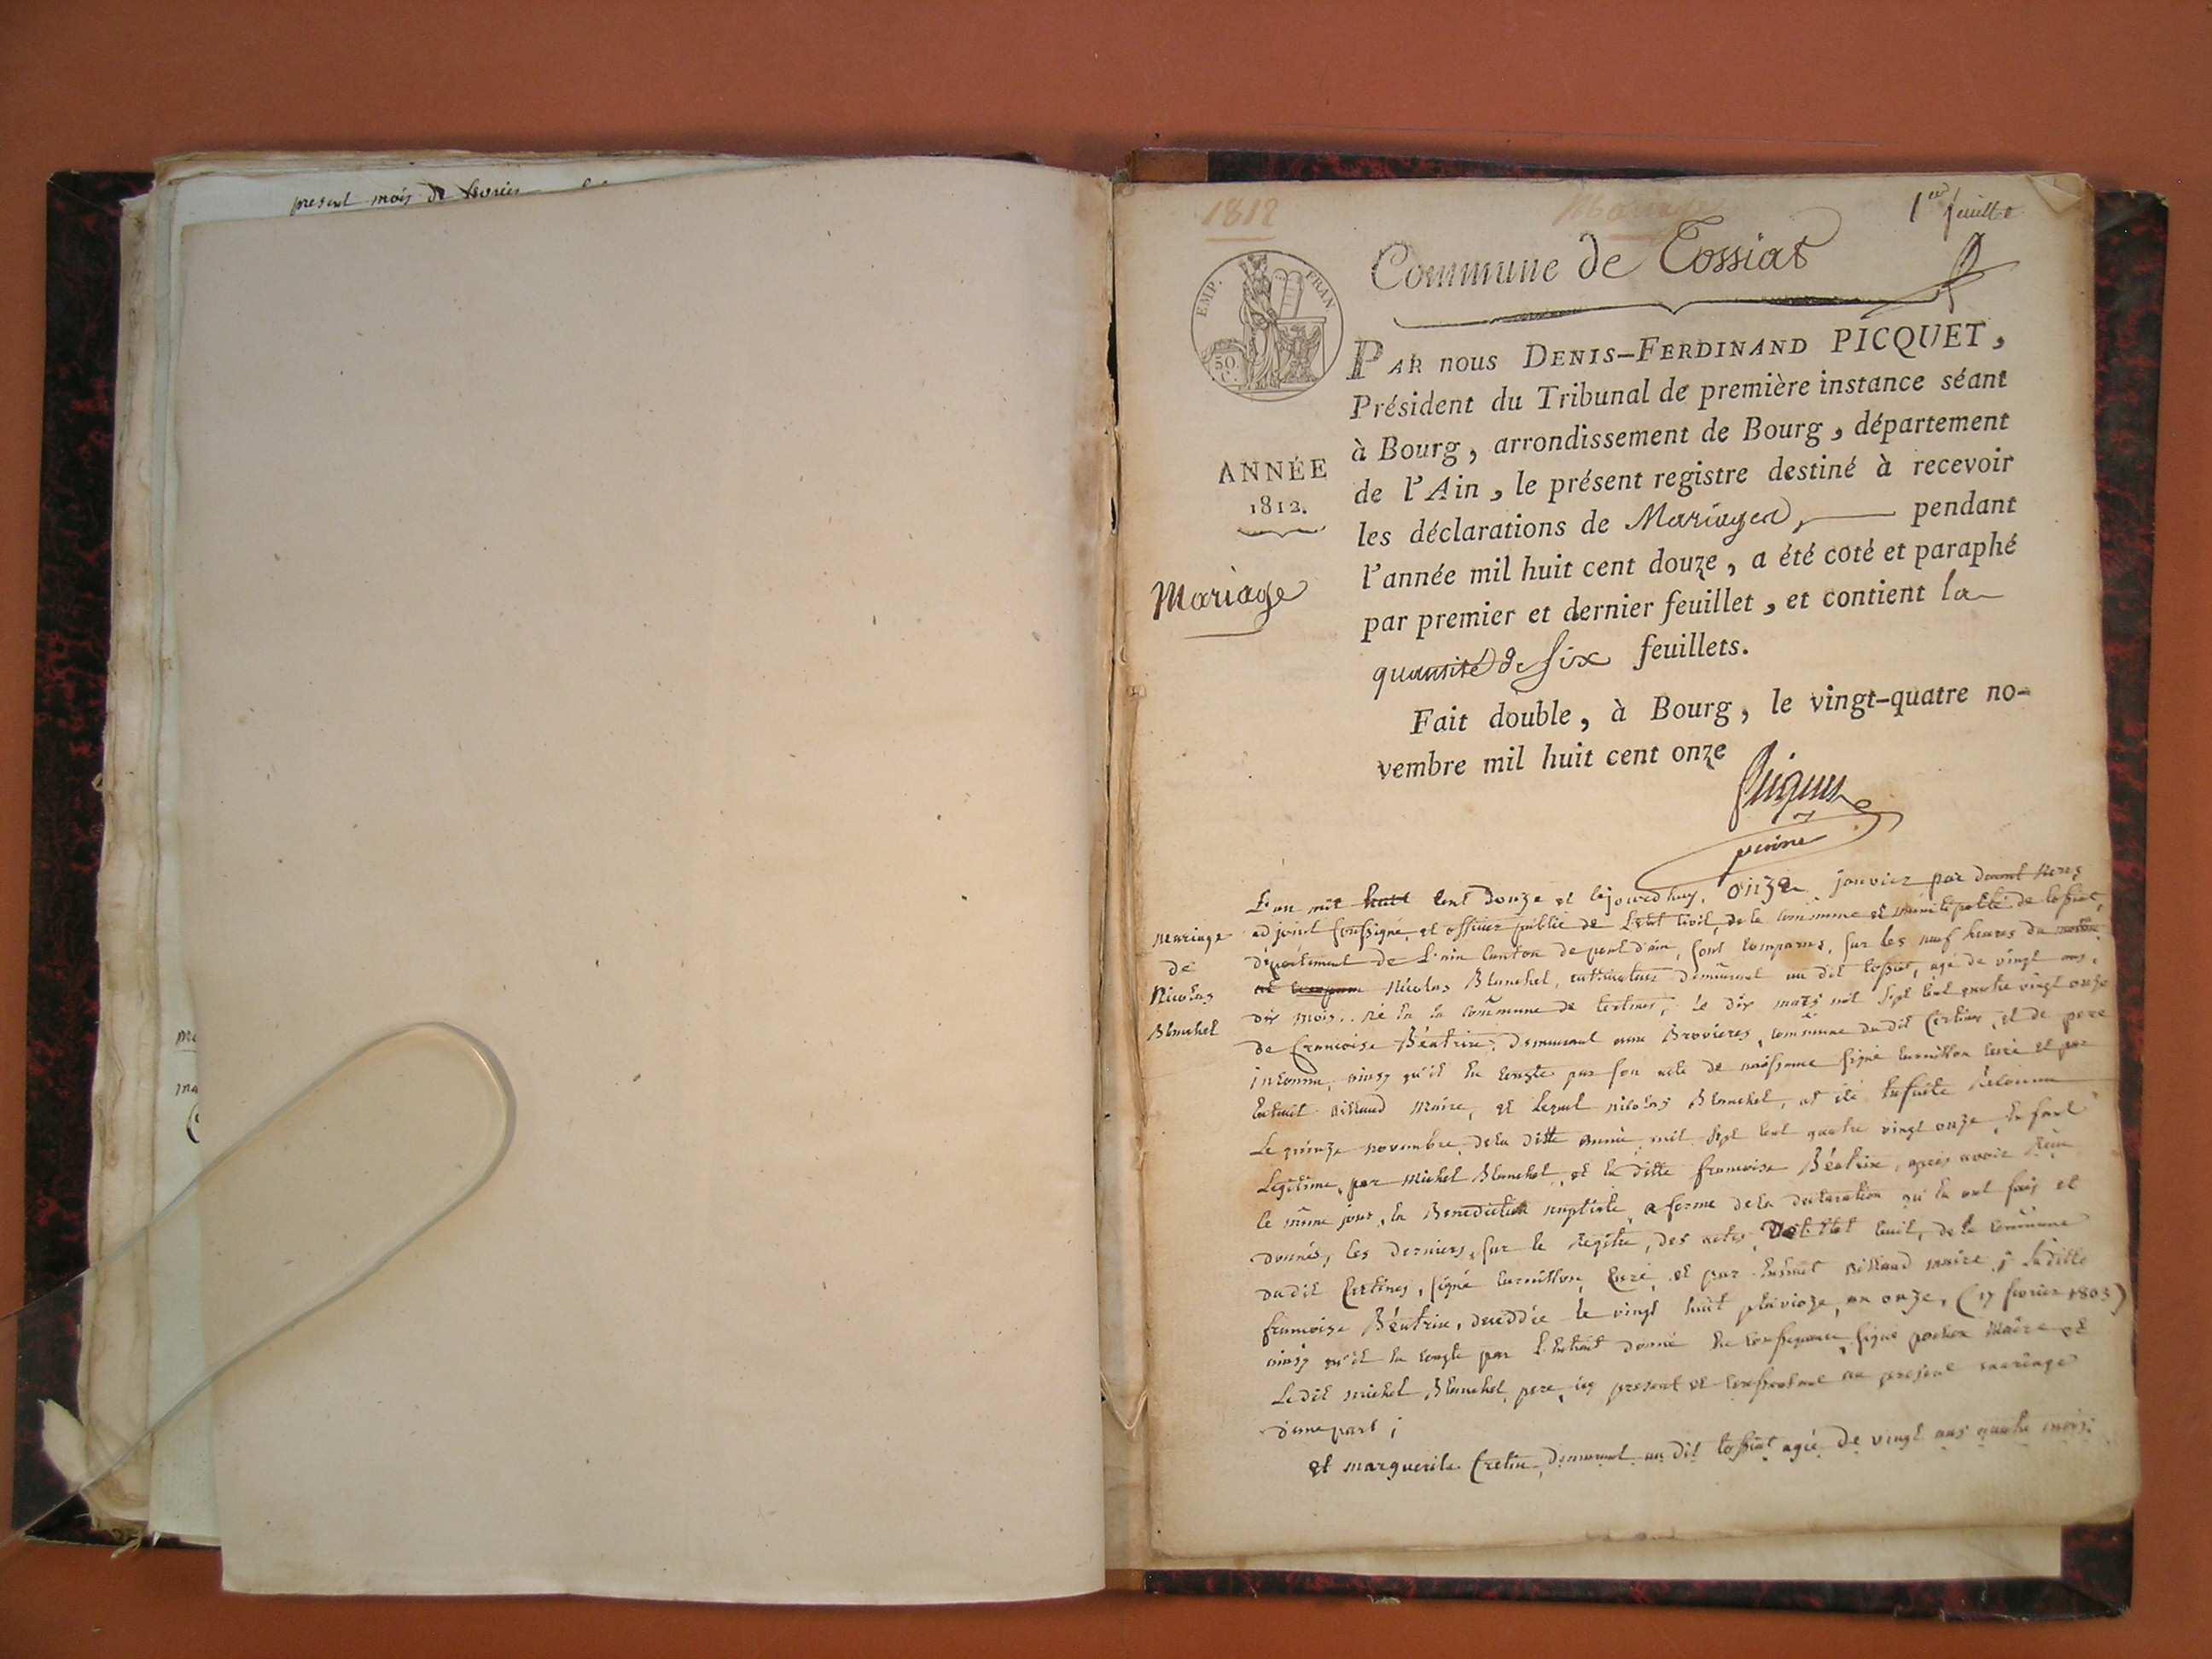 present mois de fevrier
1812
Mariage
1er feuillet
Commune de Tossiat
EMP. FRAN
50 C.
PAR nous DENIS-FERDINAND PICQUET,
Président du Tribunal de première instance séant
à Bourg, arrondissement de Bourg, département
de l'Ain, le présent registre destiné à recevoir
les déclarations de Mariages, pendant
l'année mil huit cent douze, a été coté et paraphé
par premier et dernier feuillet, et contient la
quantité de six feuillets.
Fait double, à Bourg, le vingt-quatre no-
vembre mil huit cent onze
ANNÉE
1812.
Mariage
Picquet
Mariage
de
Nicolas
Blanchet
L'an mil huit cent douze et lejourdhuy, onze janvier par devant nous
adjoint soussigné, et officier public de L'etat Civil, de la commune et municipalité de tossiat,
département de L'ain Canton de pont d'ain, sont comparus, sur les neuf heures du matin
Nicolas Blanchet, cultivateur demeurant au dit tossiat, agé de vingt ans,
dix mois.. né en la commune de Certines, le dix mars mil sept cent quatre vingt onze
de francoise Béatrix, demeurant aux Brovieres, commune du dit Certines, et de pere
inconnu, ainsy qu'il en conste par son acte de naissance signé curé et par
maire, et Lequel nicolas Blanchet, at été ensuite Reconnu
Le quinze novembre, dela ditte année mil sept cent quatre vingt onze,
Légitime, par Michel Blanchet, et la ditte francoise Béatrix, après avoir Reçu
le même jour, la Benediction nuptiale, a forme dela declaration qu'en ont fais et
donnés, les derniers, sur le Régitre, des actes de la commune
dudit Certines, signé curé, et par maire; La ditte
francoise Béatrix, decedée le vingt huit pluvioze, an onze, (17 fevrier 1803)
ainsy qu'il en conste par L'extrait donné en consequence, signé maire et
Ledit michel Blanchet pere, icy present et consentant au present mariage
d'une part;
et marguerite Cretin, demeurant au dit tossiat agée de vingt ans quatre mois.